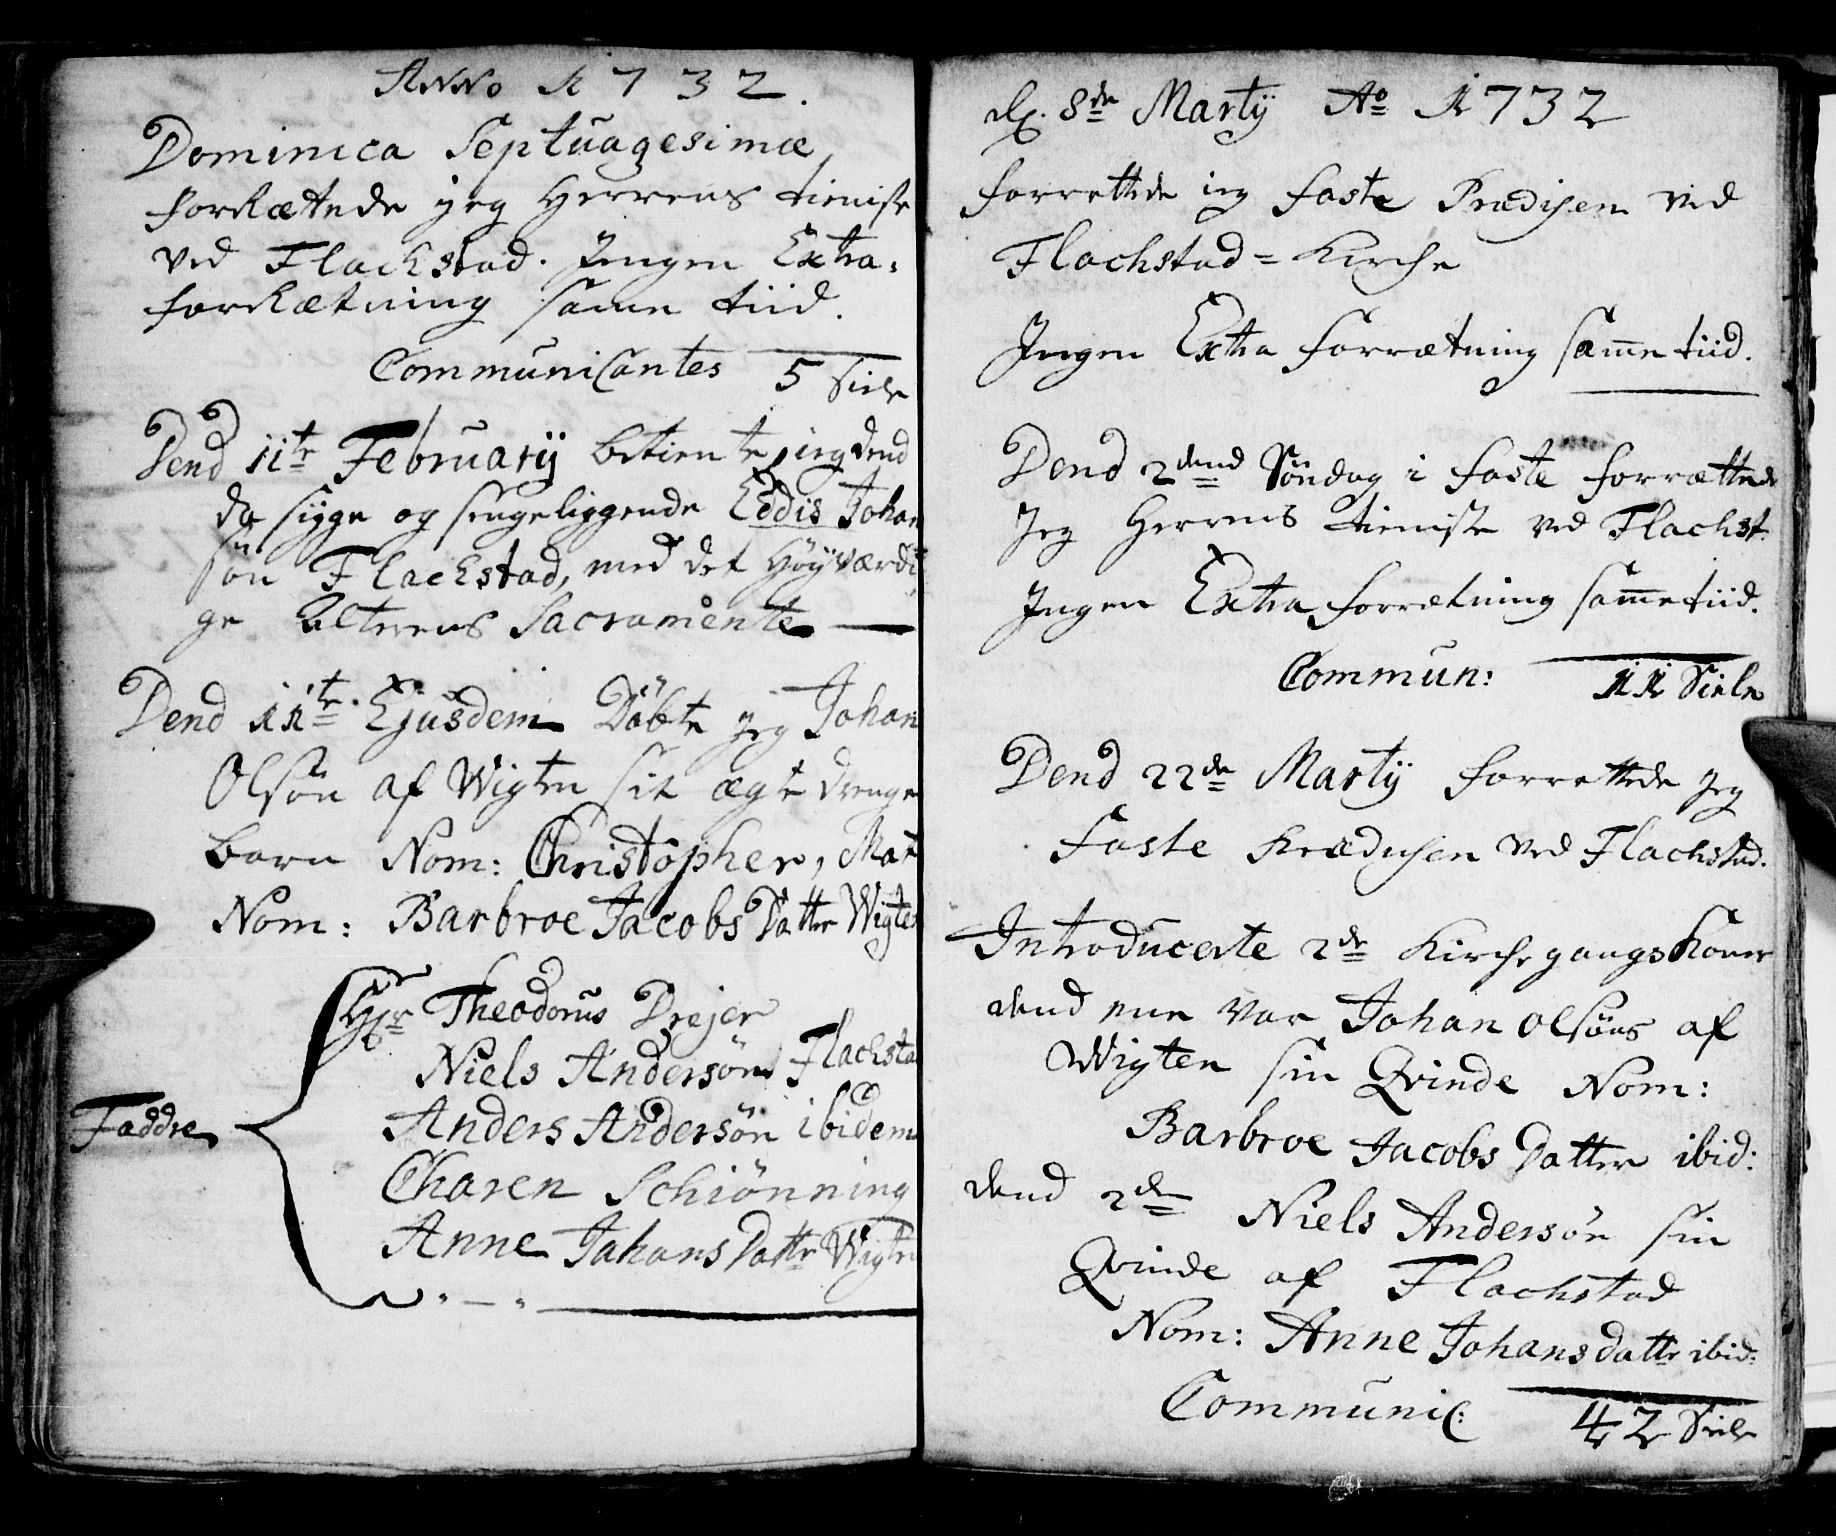 Anno 1732.
Dominica Septuagesimæ
forRætnde jeg Herrens tieniste
ved Flackstad. Jngen Extra-
forRætning same tiid.
Communicantes 5 Siele
Dend 11te February betiente jeg dend
da syge og sengeliggende Eddis Johan
søn Flackstad, med det Høyværdi
ge Alterens Sacramente
Dend 11te Ejusdem Döbte jeg Johan
Olsøn af Wigten sit ægte drenge
barn Nom: Christopher, Mat
Nom: Barbroe Jacobs Datter Wigten
Hr Theodorus Drejer
Niels Andersøn Flachsta
Faddre Anders Andersøn ibidem
Charen Schiønning
Anne Johans Dattr Wigten
d. 8de Martÿ Ao 1732
forrettede ieg faste Prædiken ved
Flachstad = Kirche
Jngen Extra forrætning samme tiid.
Dend 2dend Söndag i faste forrættede
Jeg Herrens tieniste ved Flachst.
Jngen Extra forrætning samme tiid.
Commun: 11 Siele
Dend 22de Martÿ forrettede Jeg
faste Prædichen ved Flachstad.
Introducerte 2de Kirchegangs Koner
dend ene var Johan Olsöns af
Wigten sin Qvinde Nom:
Barbroe Jacobs Datter ibid:
dend 2den Niels Andersøn sin
Qvinde af Flachstad
Nom: Anne Johans dattr ibid:
Communic: 42 Siele